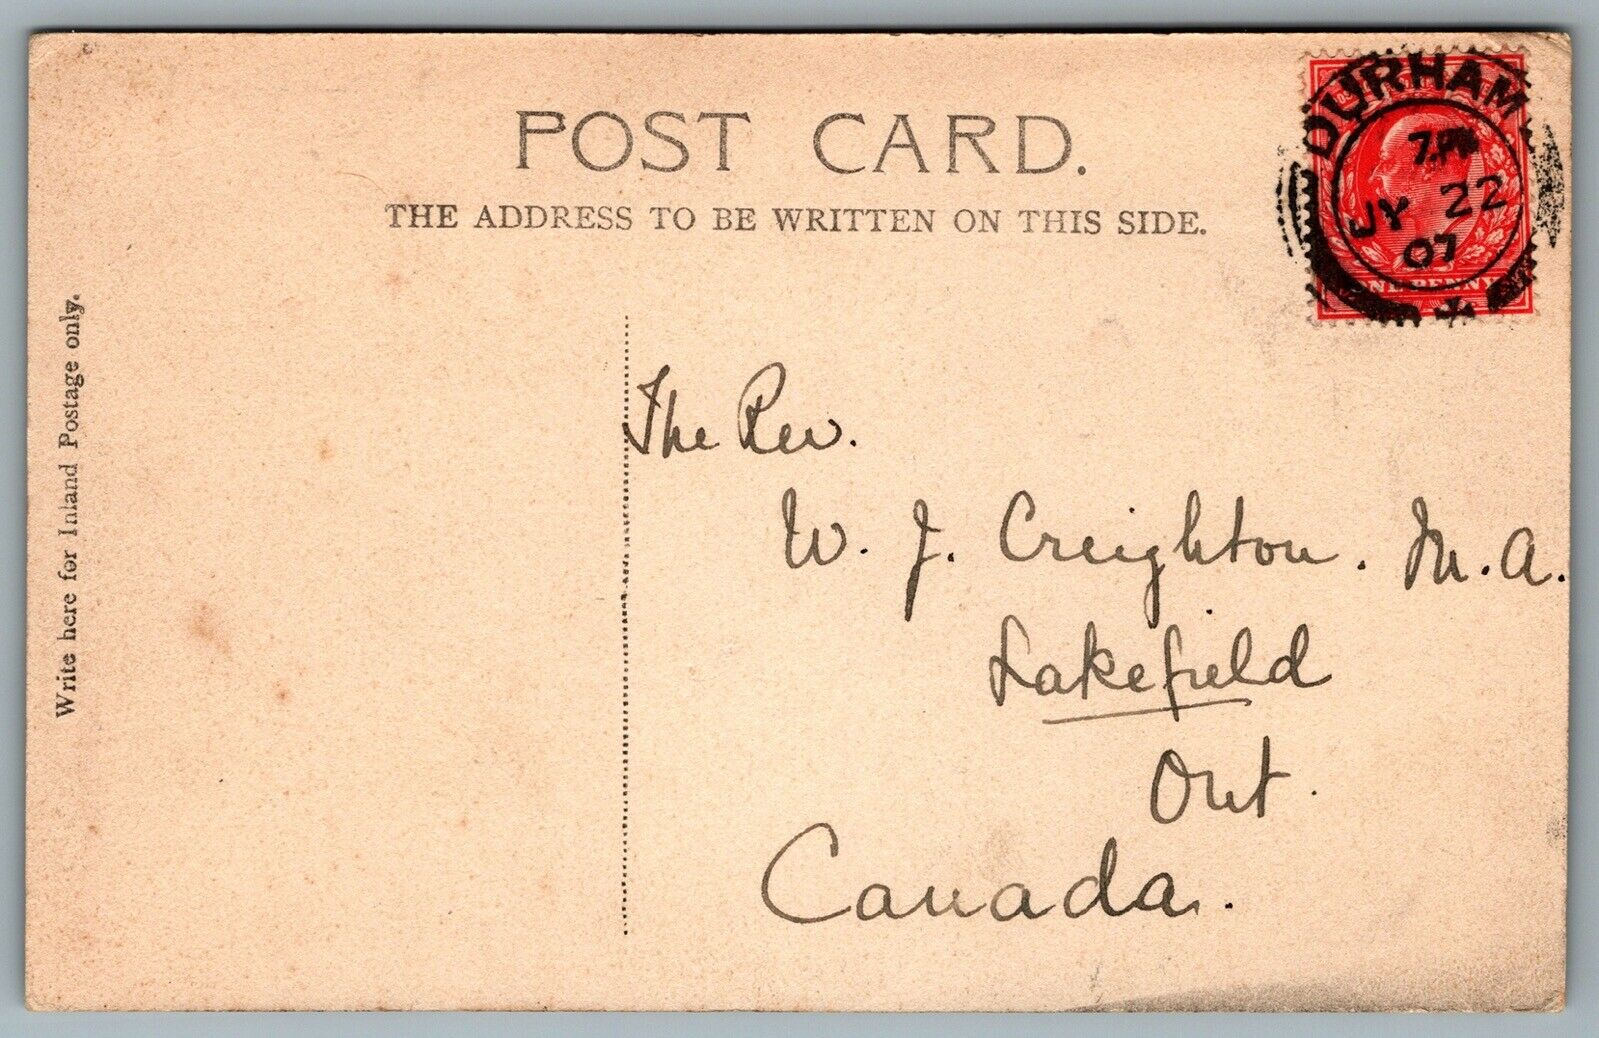 POST CARD.
THE ADDRESS TO BE WRITTEN ON THIS SIDE.
Write here for Inland Postage only.
DURHAM
7.PM
JY 22
07
ONE PENNY
The Rev.
W. J. Creighton. M.A.
Lakefield
Ont.
Canada.